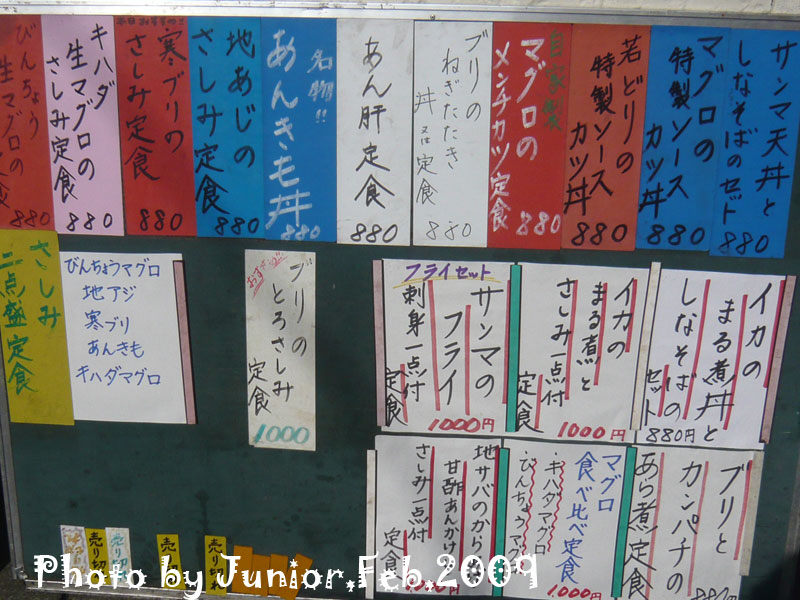 サンマ天丼と
しなそばのセット
880
マグロの
特製ソース
カツ丼
880
若どりの
特製ソース
カツ丼
880
自家製
マグロの
メンチカツ定食
880
ブリの
ねぎたたき
丼
定食
880
あん肝定食
880
名物!!
あんきも丼
880
地あじの
さしみ定食
880
本日おすすめ
寒ブリの
さしみ定食
880
キハダ
生マグロの
さしみ定食
880
びんちょう
生マグロの
さしみ定食
880
イカの
まる煮丼と
しなそばの
セット
880円
イカの
まる煮と
さしみ一点付
定食
1000円
フライセット
サンマの
フライ
刺身一点付
定食
1000円
ブリの
とろさしみ
定食
1000
びんちょうマグロ
地アジ
寒ブリ
あんきも
キハダマグロ
さしみ
二点盛定食
ブリと
カンパチの
あら煮定食
880円
マグロ
食べ比べ定食
・キハダマグロ
・びんちょうマグロ
地サバのから
甘酢あんかけ
さしみ一点付
定食
売り切れ
売り切れ
売り切れ
売り切れ
Photo by Junior.Feb.2009